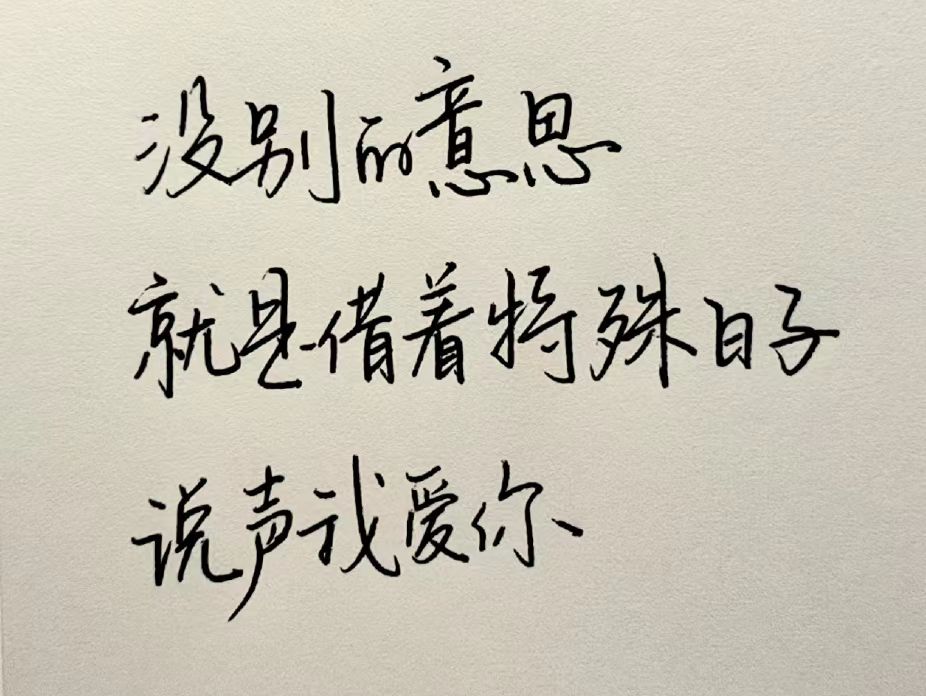 没别的意思
就是借着特殊日子
说声我爱你